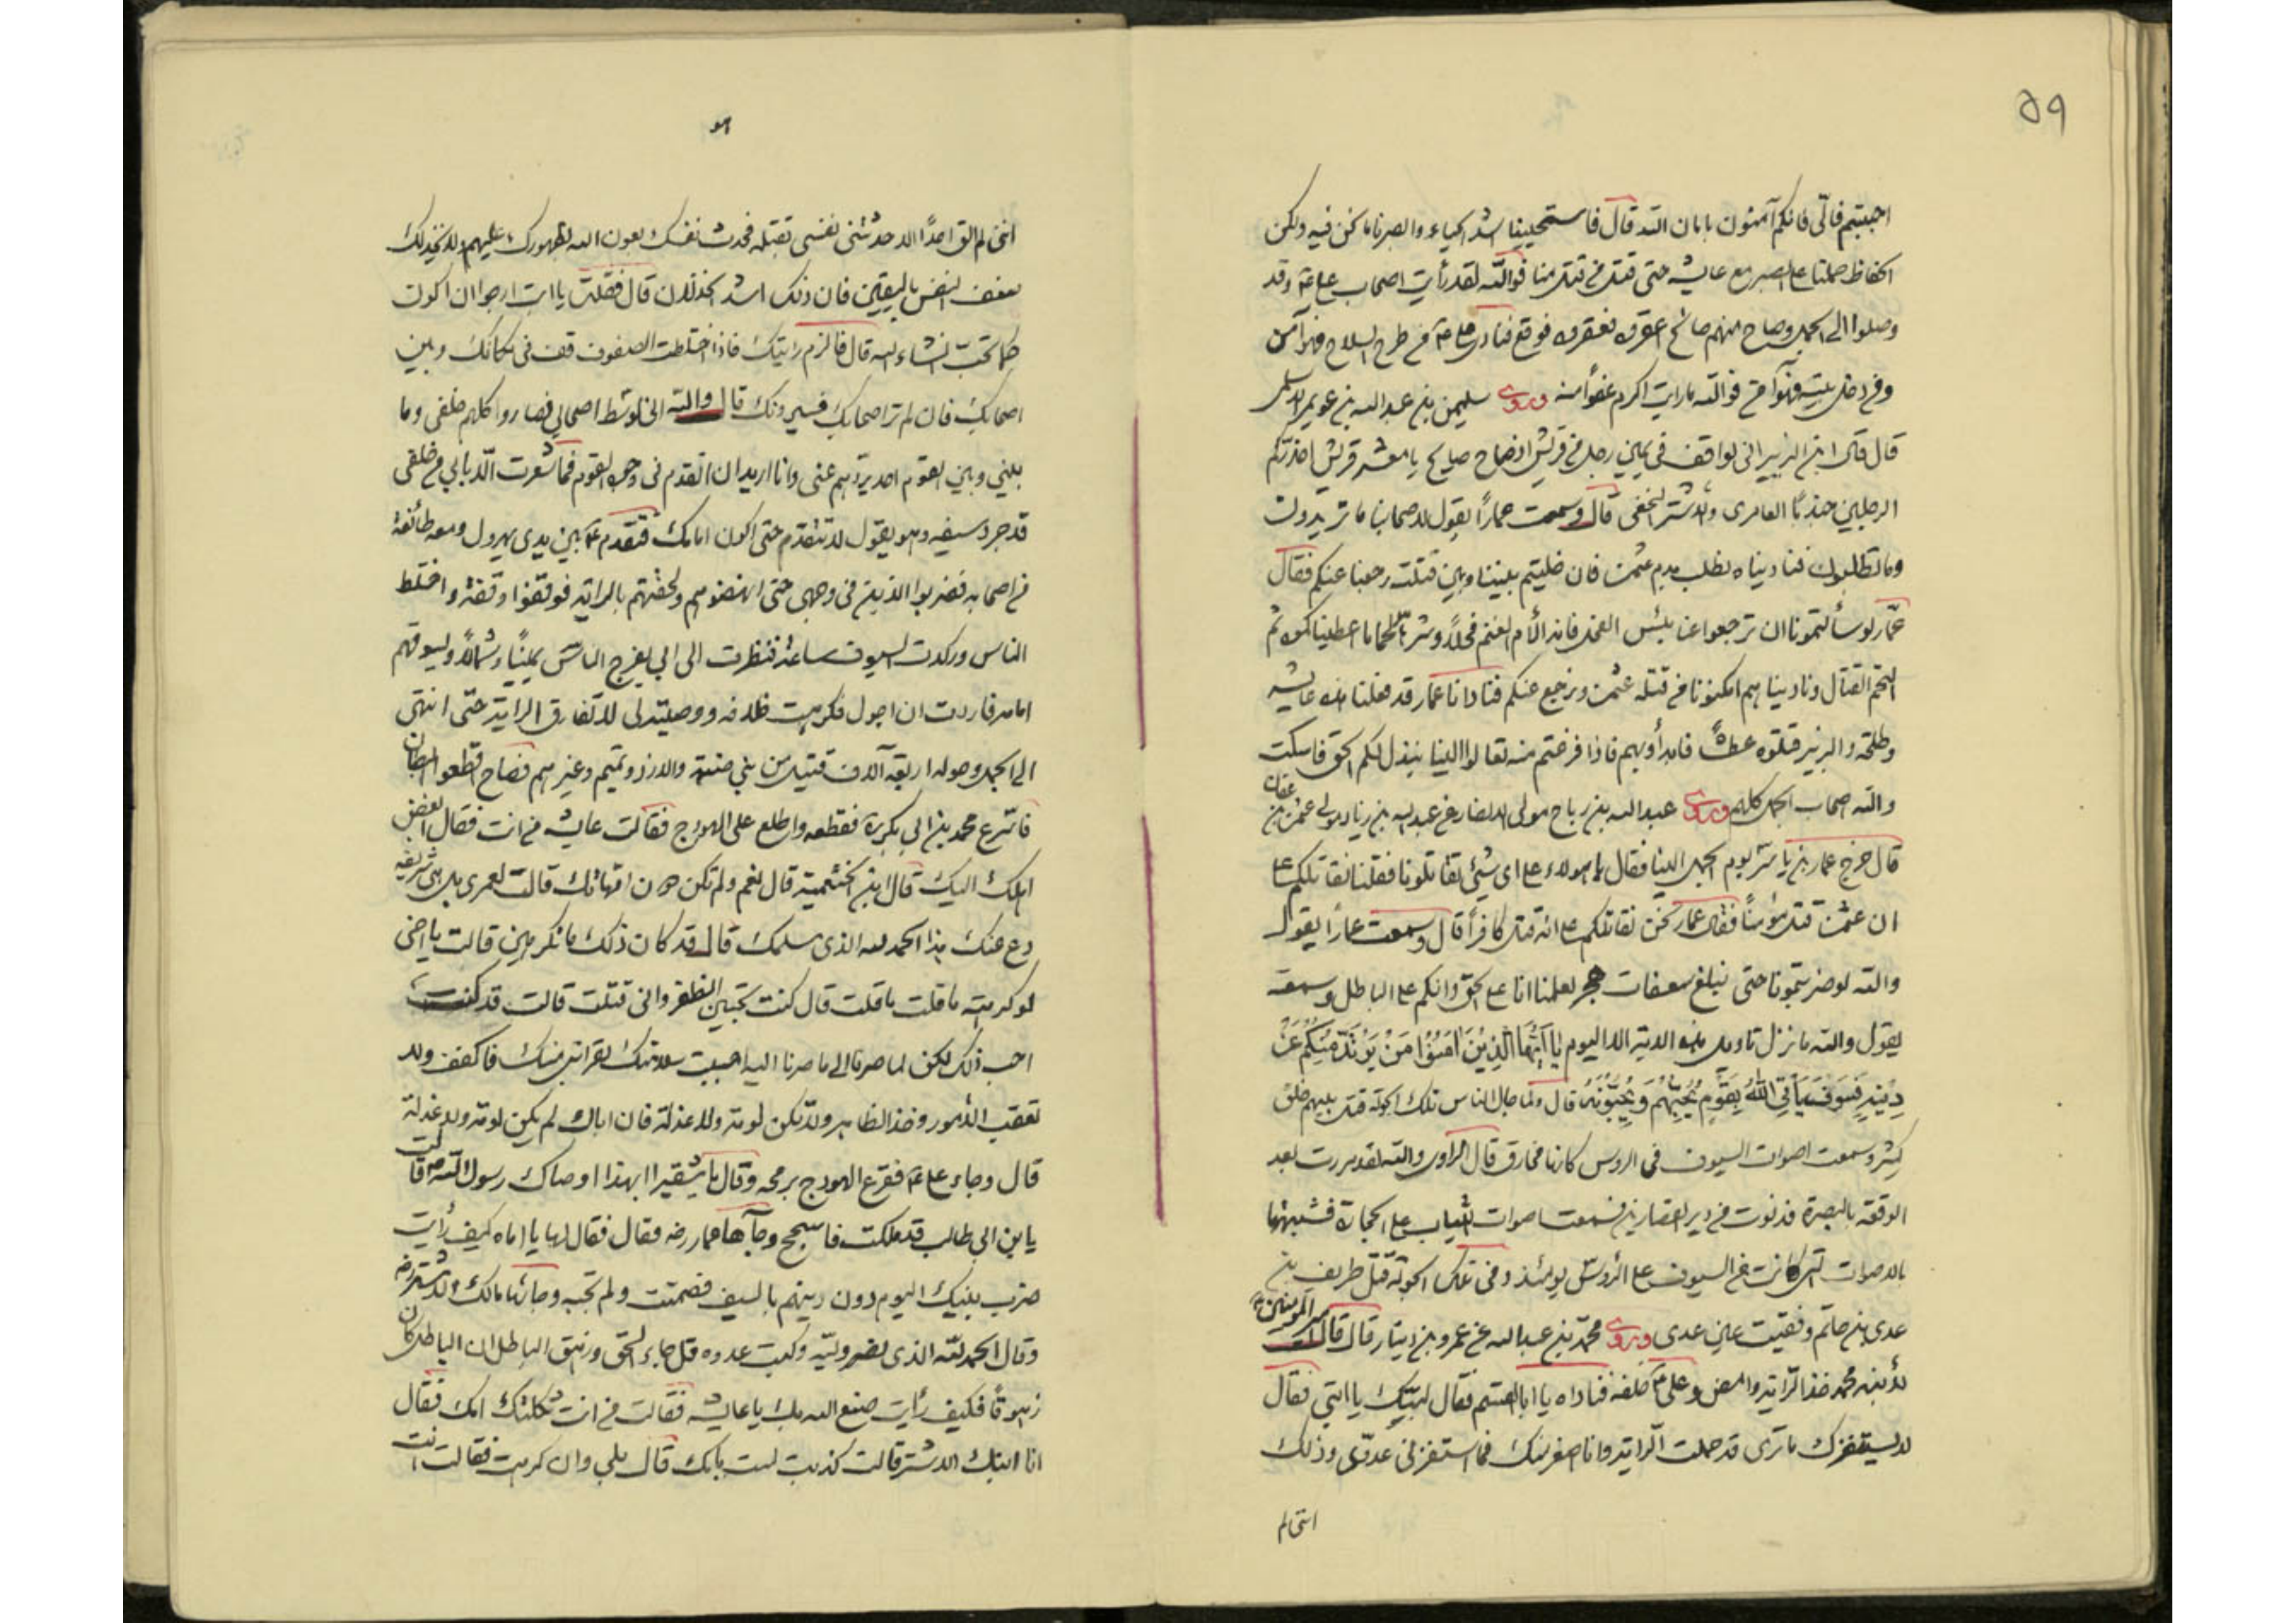 ٥٩
اجبتم فالّى فانكم آمنون بامان الله قال فاستحيينا اشد الحياء والصبرنا ما نحن فيه ولكن
الحفاظ حملنا على الصبر مع عايشه حتى قتل من قتل منا فوالله لقد رأيت اصحاب على ع وقد
وصلوا الى الجمل وصاح منهم صائح اعقروه فعقروه فوقع فنادى على ع من طرح السلاح فهو آمن
ومن دخل بيته فهو آمن فوالله ما رايت اكرم عفوا منه وروى سليمن بن عبد الله بن عويمر الاسلمى
قال قال ابن الزبير انى لواقف فى يمين رجل من قريش اذ صاح صايح يا معشر قريش احذركم
الرجلين جندبا العامرى والاشتر النخعى قال وسمعت عمارا يقول لاصحابنا ما تريدون
وما تطلبون فناديناه نطلب بدم عثمن فان خليتم بيننا وبين قتلته رجعنا عنكم فقال
عمّار لو سألتمونا ان ترجعوا عنا بئس الفحل فانه الأم الغنم فحلاً وشرها لحما ما اعطيناكموه ثم
التحم القتال وناديناهم امكنونا من قتلة عثمن ونرجع عنكم فنادانا عمار قد فعلنا هذه عايشه
وطلحة والزبير قتلوه عطشاً فابدأوا بهم فاذا فرغتم منه تعالوا الينا نبذل لكم الحق فاسكت
والله اصحاب الجمل كلهم وروى عبد الله بن رباح مولى الانصار عن عبد الله بن زياد مولى عثمن بن عفان
قال خرج عمار بن ياسر يوم الجمل الينا فقال يا هولاء على اى شئ تقاتلونا فقلنا نقاتلكم على
ان عثمن قتل مؤمناً فقال عمار نحن نقاتلكم على انه قتل كافراً قال وسمعت عماراً يقول
والله لو ضربتمونا حتى نبلغ سعفات هجر لعلمنا انا على الحق وانكم على الباطل وسمعته
يقول والله ما نزل تاويل هذه الاية الا اليوم يا أَيُّهَا الَّذِينَ آمَنُوا مَنْ يَرْتَدَّ مِنْكُمْ عَنْ
دِينِهِ فَسَوْفَ يَأْتِي اللهُ بِقَوْمٍ يُحِبُّهُمْ وَيُحِبُّونَهُ قال ولما جال الناس تلك الجولة قتل بينهم خلق
كثير وسمعت اصوات السيوف فى الروس كانها مخارق قال الراوى والله لقد مررت بعد
الوقعة بالبصرة فدنوت من دير القصارين فسمعت اصوات الثياب على الحجارة فشبهتها
بالاصوات التى كانت من السيوف على الروس يومئذ وفى تلك الجولة قتل طريف بن
عدى بن حاتم وفقيت عين عدى وروى محمد بن عبد الله عن عمرو بن دينار قال قال امير المومنين ع
لابنه محمد خذ الراية وامض وعلى ع خلفه فناداه يا ابا القسم فقال لبيك يا ابتى فقال
لا يستفزك ما ترى قد حملت الراية وانا اصغر منك فما استفزنى عدوّى وذلك
اننى لم
اننى لم الق احداً الا حدثتنى نفسى بقتله فحدث نفسك بعون الله بظهورك عليهم ولا يخذلك
ضعف النفس باليقين فان ذلك اشد الخذلان قال فقلت يا ابت ارجو ان اكون
كما تحبّ انشاء الله قال فالزم رايتك فاذا اختلطت الصفوف قف فى مكانك وبين
اصحابك فان لم تر اصحابك فسيرونك قال والله انى لوسط اصحابى فصاروا كلهم خلفى وما
بينى وبين القوم احد يردهم عنى وانا اريد ان اتقدم فى وجوه القوم فما شعرت الا بابى من خلفى
قد جرد سيفه وهو يقول لا تتقدم حتى اكون امامك فتقدم ع بين يدى يهرول ومعه طائفة
من اصحابه فضربوا الذين فى وجهى حتى انهضوهم ولحقتهم بالراية فوقفوا وقفة واختلط
الناس وركدت السيوف ساعة فنظرت الى ابى يفرج الناس يميناً وشمالاً ويسوقهم
امامه فاردت ان اجول فكرهت خلافه ووصيته لى لا تفارق الراية حتى انتهى
الى الجمل وحوله اربعة آلاف قتيل من بنى ضبة والازد وتميم وغيرهم فصاح اقطعوا البطان
فاسرع محمد بن ابى بكر فقطعه واطلع على الهودج فقالت عايشه من انت فقال ابغض
اهلك اليك قال ابن الخثعمية قال نعم ولم تكن دون امهاتك قالت لعمرى بل هى شريفة
دع عنك هذا الحمد لله الذى سلمك قال قد كان ذلك ما تكرهين قالت يا اخى
لو كرهته ما قلت ما قلت قال كنت تحبين الظفر وانى قتلت قالت قد كنت
احب ذلك لكن لما صرنا الى ما صرنا اليه احببت سلامتك لقرابتى منك فاكفف ولا
تعقب الامور وخذ الظاهر ولا تكن لومة ولا عذلة فان اباك لم يكن لومة ولا عذلة
قال وجاء على ع فقرع الهودج برمحه وقال يا شقيرا ابهذا اوصاك رسول الله ص قالت
يابن ابى طالب قد ملكت فاسجح وجآءها عمار رضه فقال فقال لها يا اماه كيف رأيت
ضرب بنيك اليوم دون دينهم بالسيف فصمتت ولم تجبه وجائها مالك الاشتر رضه
وقال الحمد لله الذى نصر وليّه وكبت عدوه قل جاء الحق وزهق الباطل ان الباطل كان
زهوقاً فكيف رأيت صنع الله بك يا عايشه فقالت من انت ثكلتك امك فقال
انا ابنك الاشتر قالت كذبت لست بامك قال بلى وان كرهت فقالت انت